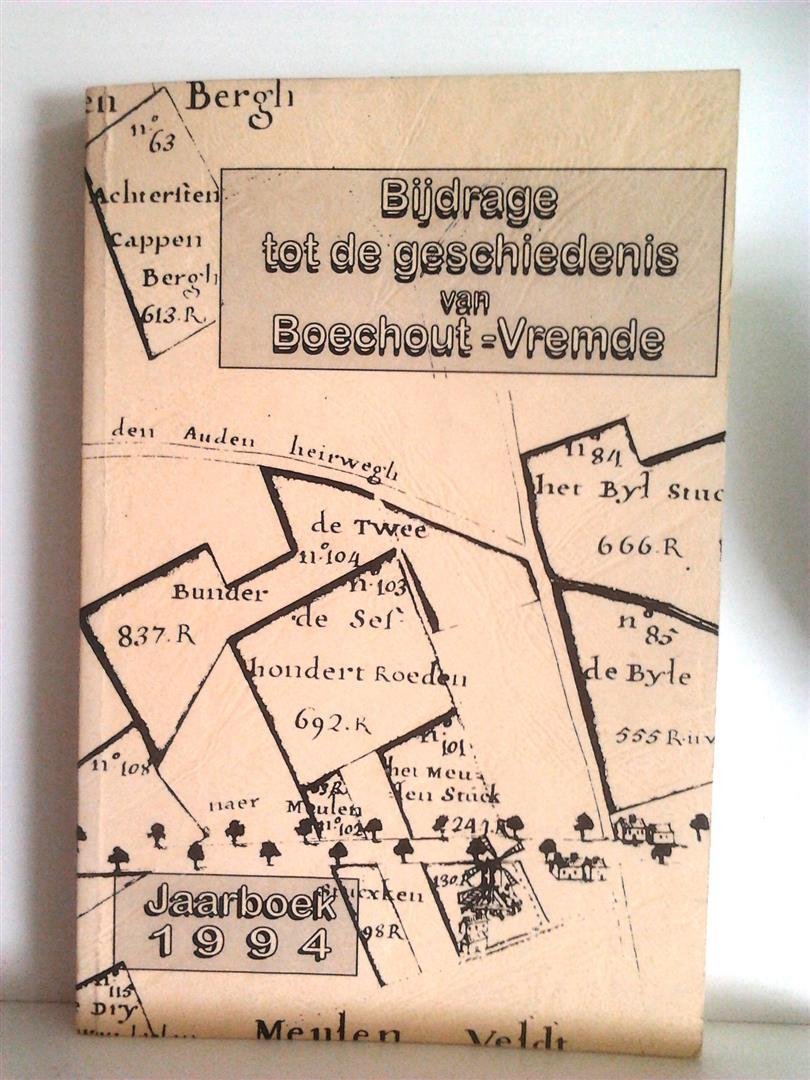 en Bergh
n.º 63
Achtersten
Cappen
Bergh
613.R
Bijdrage
tot de geschiedenis
van
Boechout-Vremde
den Auden heirwegh
nº 84
het Byl Stuc
666.R
de Twee
n.º 104
Bunder
837.R
n.º 103
de Ses
hondert Roeden
692.R
nº 85
de Byle
555 R.
n.º 101
het Meu
len Stuck
24 R
n.º 108
naer Meulen
n.º 102
130.R
Stucxken
98R
Jaarboek
1994
n.º 115
Dry
Meulen Veldt